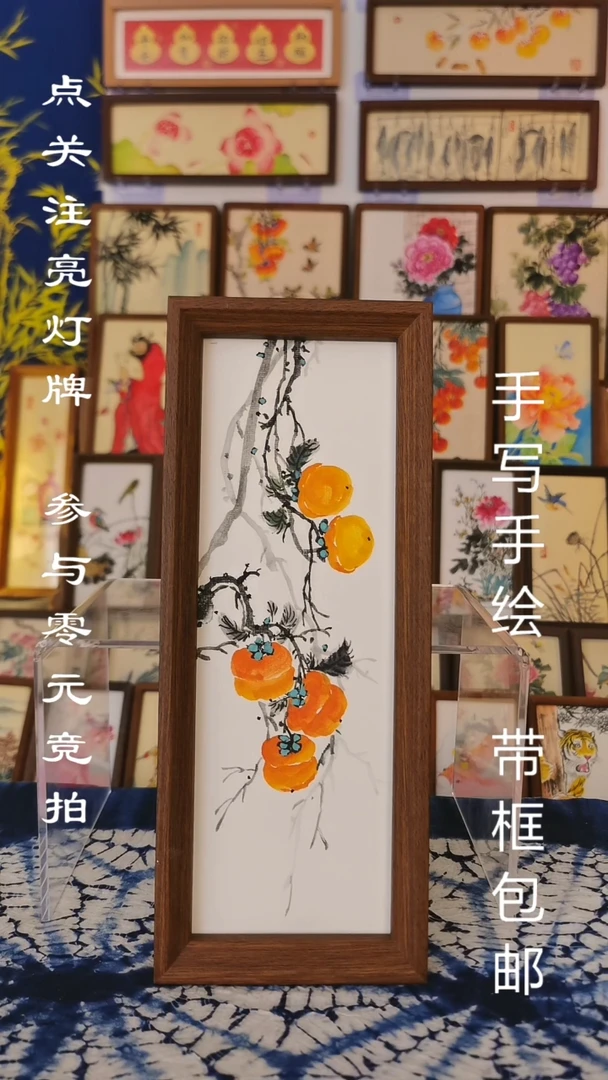 点关注亮灯牌
参与零元竞拍
手写手绘
带框包邮